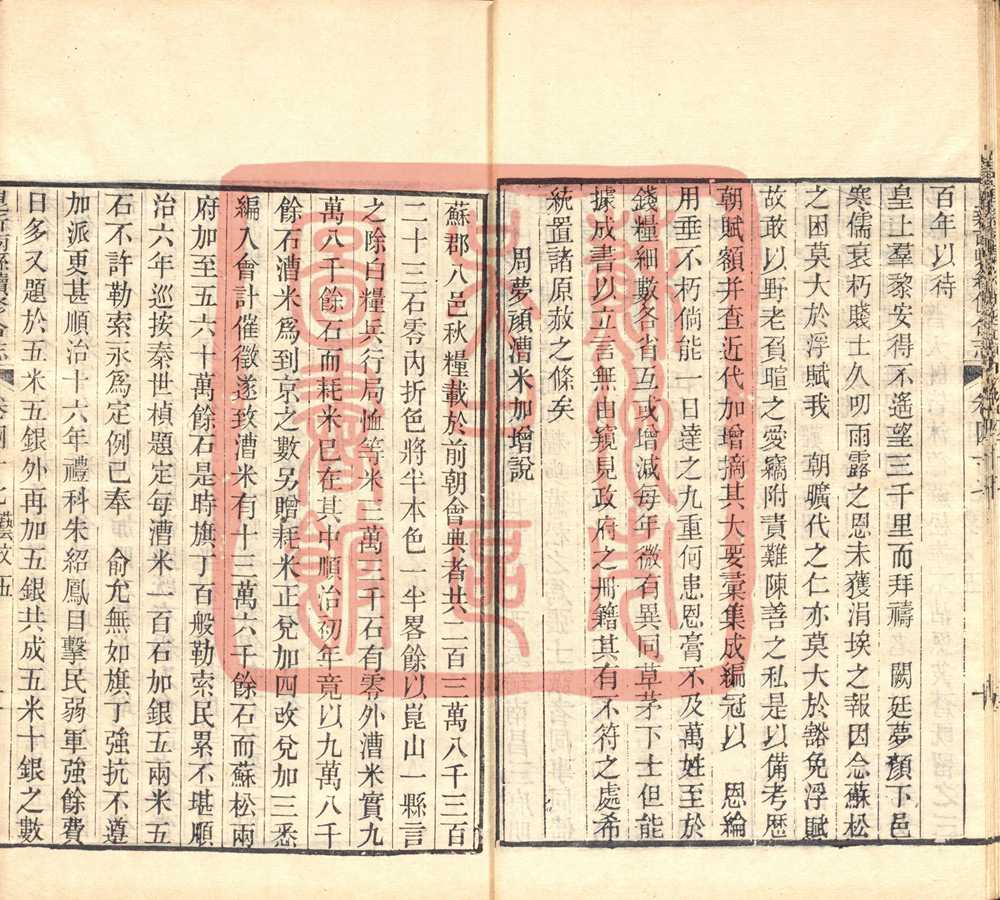 百年以待
皇上羣黎安得不遙望三千里而拜禱　闕廷夢顏下邑
寒儒衰朽賤士久叨雨露之恩未獲涓埃之報因念蘇松
之困莫大於浮賦我　朝曠代之仁亦莫大於豁免浮賦
故敢以野老負暄之愛竊附責難陳善之私是以備考歷
朝賦額并查近代加增摘其大要彙集成編冠以　恩綸
用垂不朽倘能一日達之九重何患恩膏不及萬姓至於
錢糧細數各省互或增減每年微有異同草茅下士但能
據成書以立言無由窺見政府之冊籍其有不符之處希
統置諸原赦之條矣
周夢顏漕米加增說
蘇郡八邑秋糧載於前朝會典者共二百三萬八千三百
二十三石零內折色將半本色一半畧餘以崑山一縣言
之除白糧兵行局恤等米三萬三千石有零外漕米實九
萬八千餘石而耗米已在其中順治初年竟以九萬八千
餘石漕米爲到京之數另贈耗米正兌加四改兌加三悉
編入會計催徵遂致漕米有十三萬六千餘石而蘇松兩
府加至五六十萬餘石是時旗丁百般勒索民累不堪順
治六年巡按秦世楨題定每漕米一百石加銀五兩米五
石不許勒索永爲定例已奉　俞允無如旗丁強抗不遵
加派更甚順治十六年禮科朱紹鳳目擊民弱軍強餘費
日多又題於五米五銀外再加五銀共成五米十銀之數